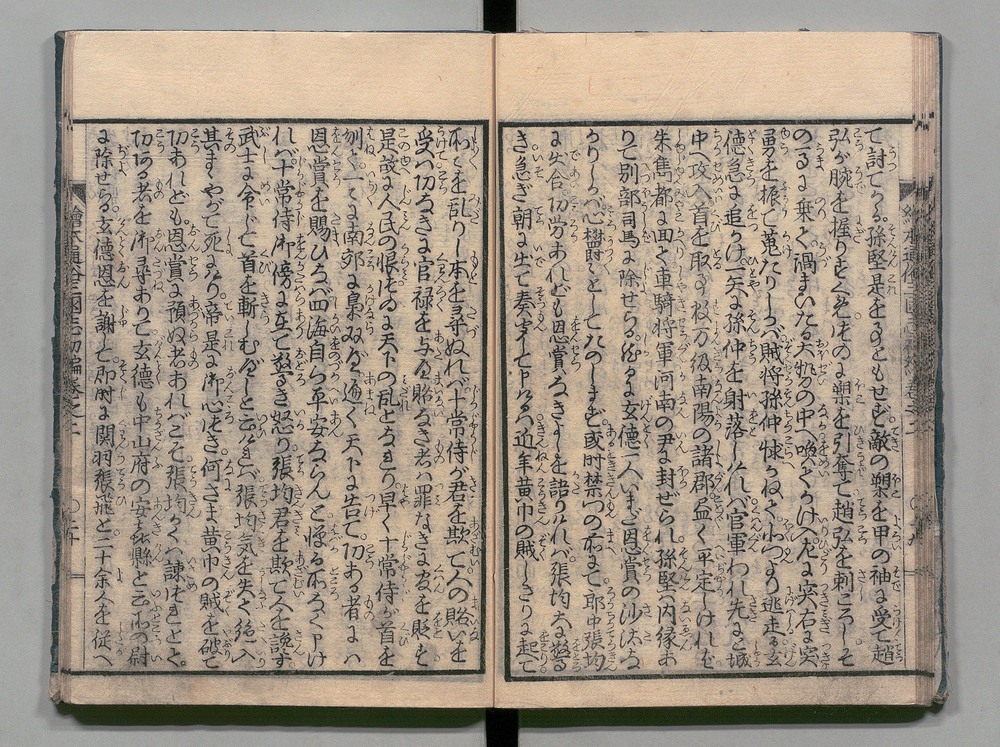 て討てかゝる孫堅是をものともせず敵の槊を甲の袖に受て趙
弘が腕を握りもぎ其槊を引奪て趙弘を刺ころしそ
の馬に乗て渦まいたる大勢の中へ喚てかけ左に突右に突
勇を振て薙たりしかば賊将孫仲怺かねて逃走る玄
徳急に追かけ一矢に孫仲を射落しければ官軍われ先にと城
中へ攻入首を取る事数万級南陽の諸郡盡く平定しければ
朱雋都に回て車騎将軍河南の尹に封ぜられ孫堅内縁あ
りて別部司馬に除せらる然るに玄徳一人いまだ恩賞の沙汰な
かりしかば心鬱々としてたのしまず或時禁門の前にて郎中張均
に出合功労あれども恩賞なきよしを語りければ張均大に驚
き急ぎ朝に出て奏聞して申けるは近年黄巾の賊しきりに起て
所々を乱りし本を尋ぬれば十常侍が君を欺て人の賂いを
受功なきに官禄を与へ賂なき者は罪なきに官を貶しむ
是故に人民の恨そるに天下の乱となれり早く十常侍が首を
刎て一々に南郊に梟双が遍く天下に告て功ある者には
恩賞を賜ひなば四海自ら平安ならんと憚る所なく申け
れば十常侍御傍に在て驚き怒り張均君を欺て人を讒す
武士に令じて首を斬しむべしと云ければ張均気を失て絶入
其まゝやがて死たり帝是に御心付き何さま黄巾の賊を破て
功あれども恩賞に預ぬ者あればこそ張均かくは諫けめとて
功ある者を御尋ありて玄徳も中山府の安喜縣と云所の尉
に除せらる玄徳恩を謝して即時に関羽張飛と二十余人を従へ